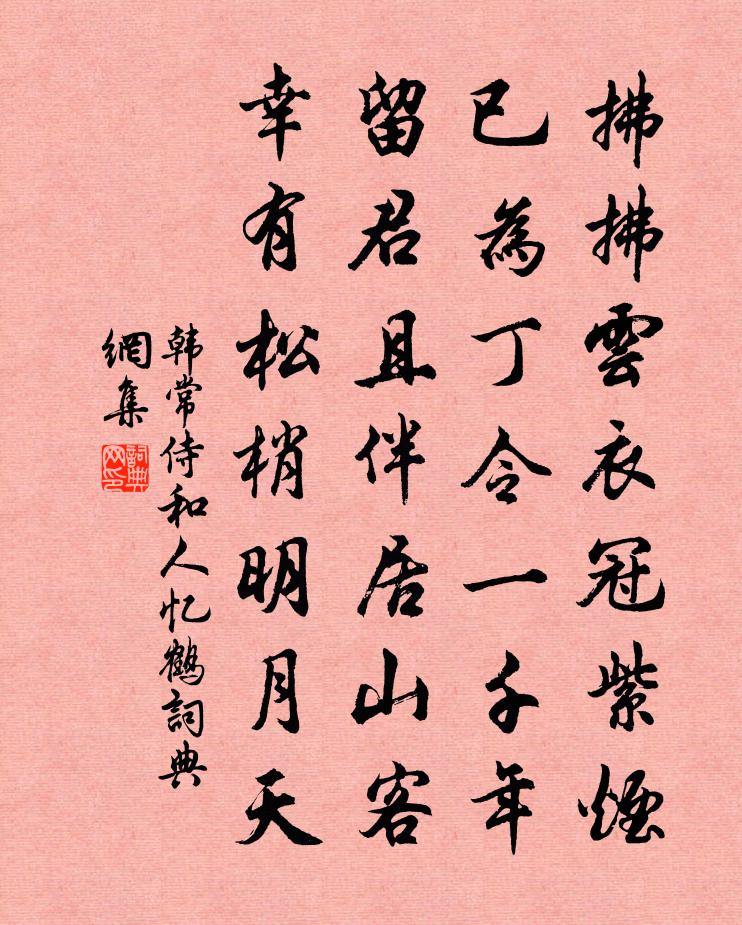 拂拂雲衣冠紫煙
已為丁令一千年
留君且伴居山客
幸有松梢明月天
韩常侍和人忆鶴詞典
網集
詞典
网印